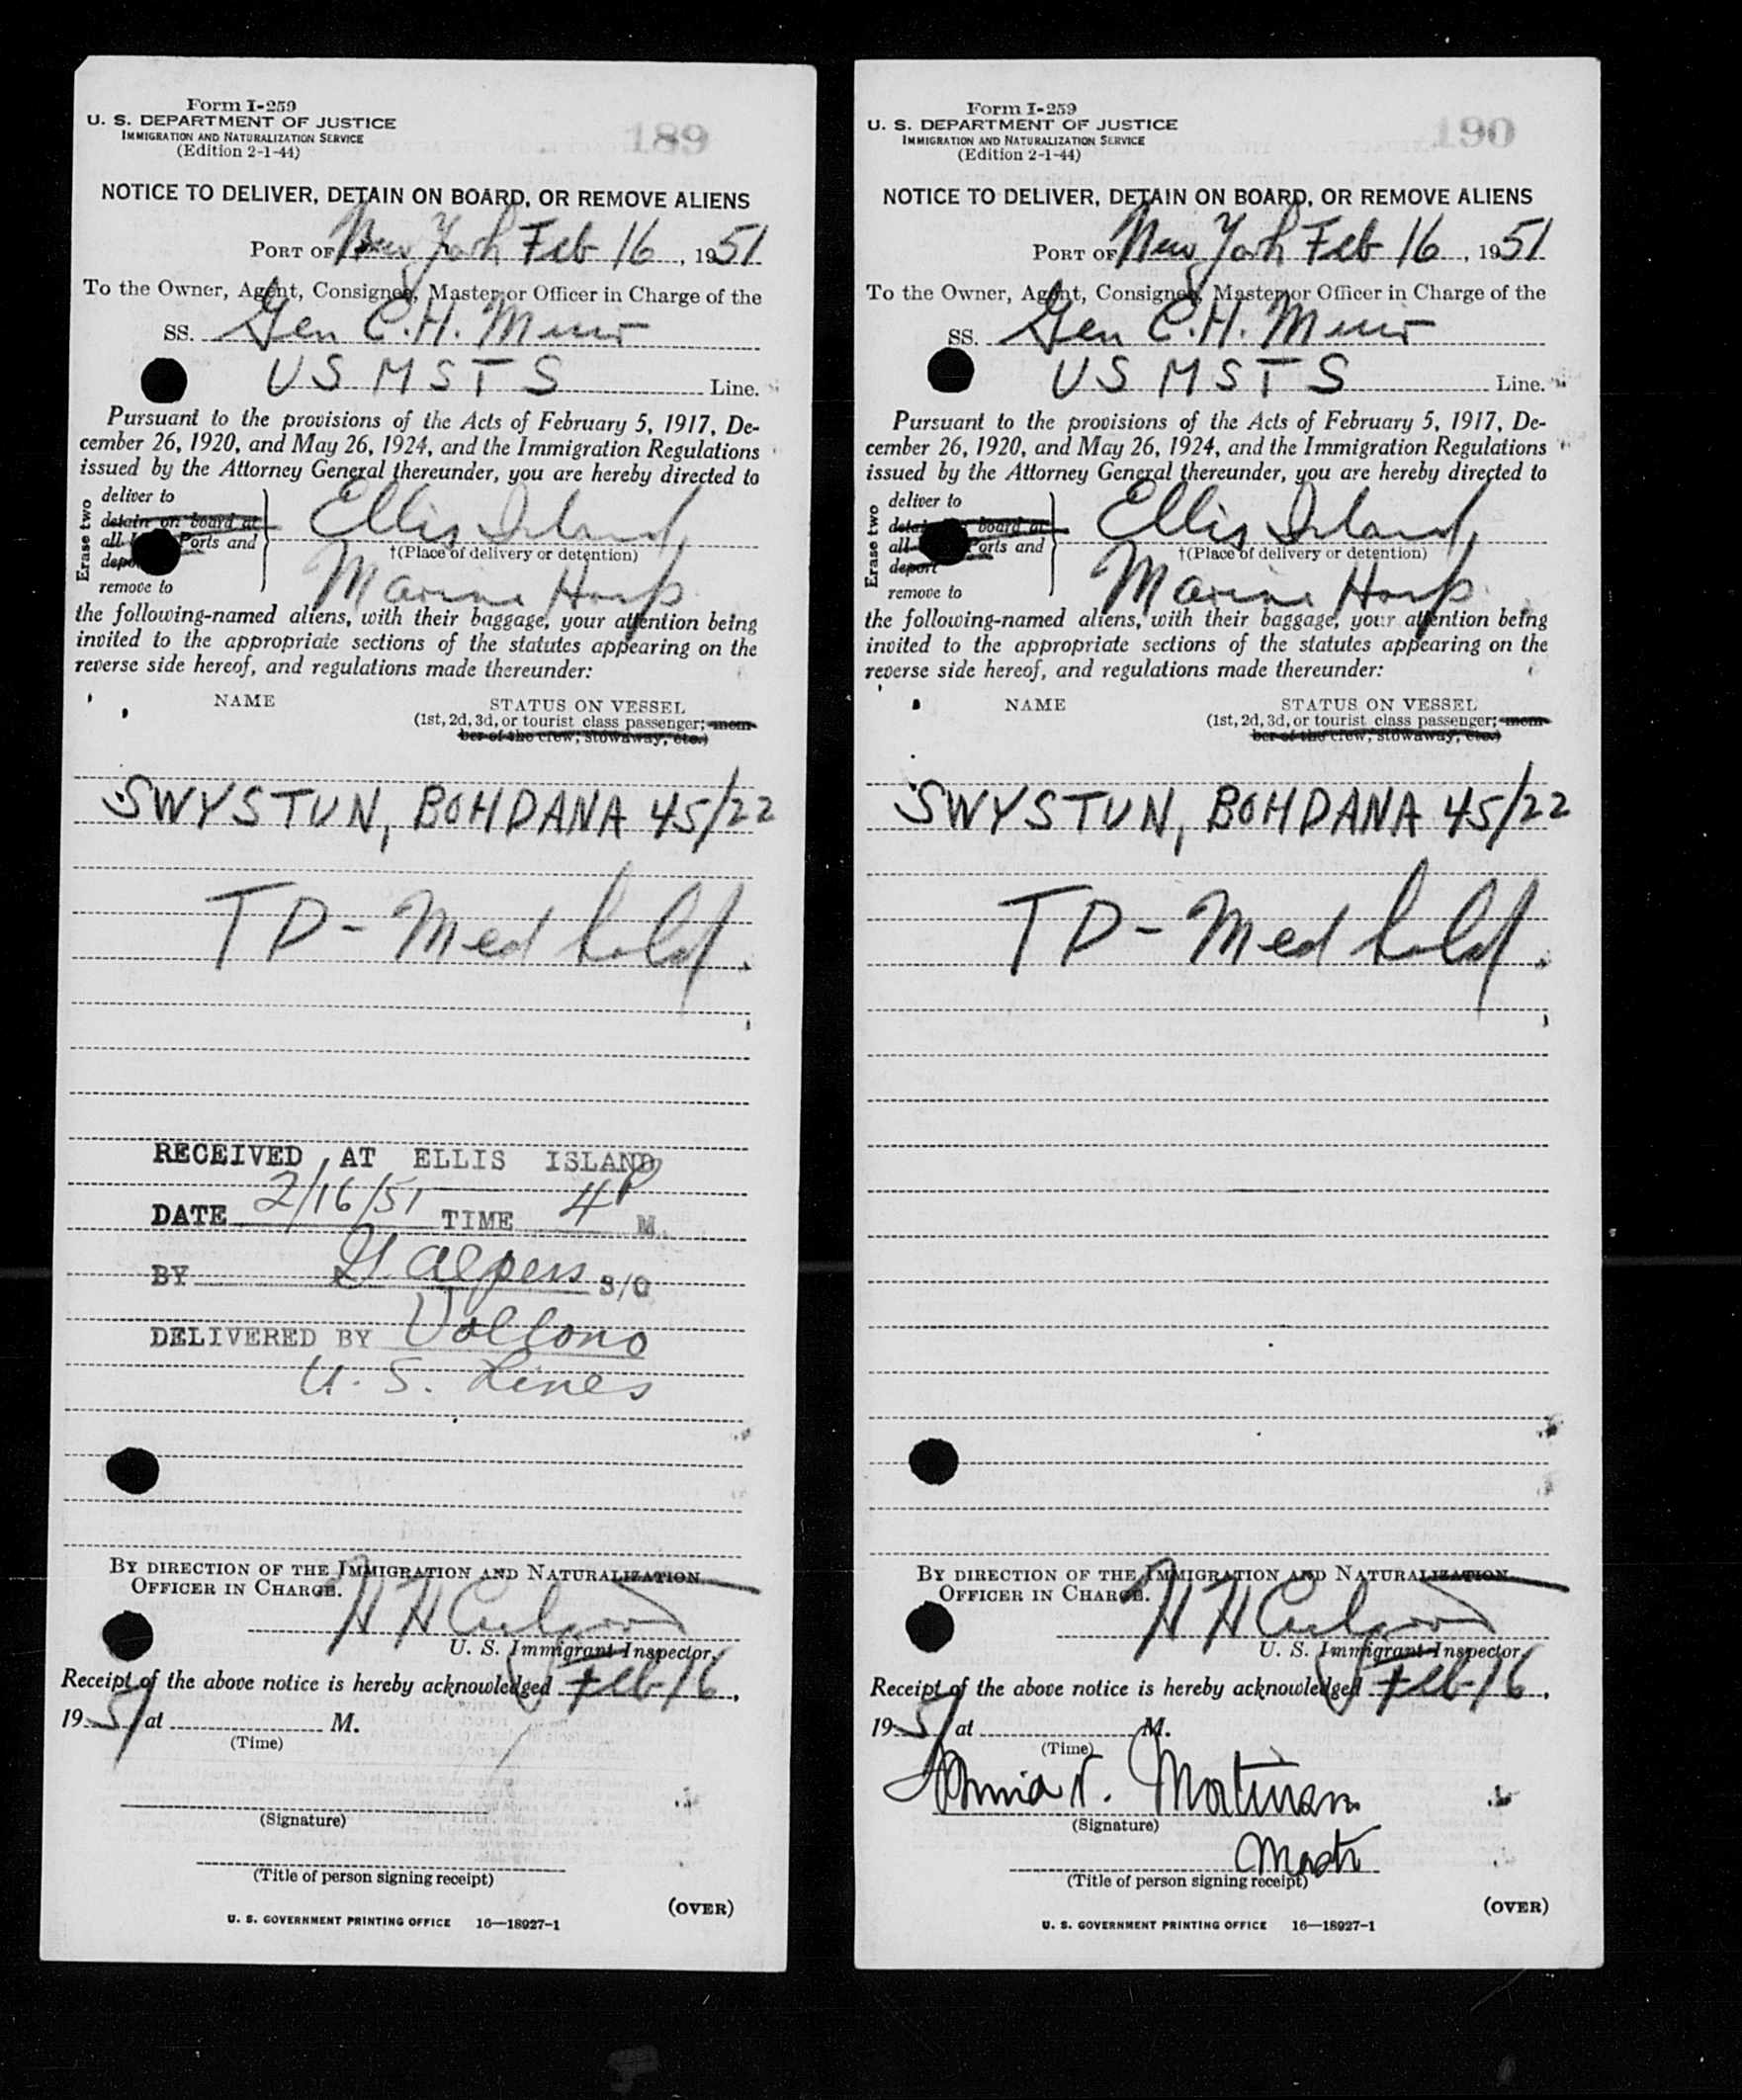 Form I-259
U. S. DEPARTMENT OF JUSTICE
IMMIGRATION AND NATURALIZATION SERVICE
(Edition 2-1-44)
189
NOTICE TO DELIVER, DETAIN ON BOARD, OR REMOVE ALIENS
PORT OF New York Feb 16, 1951
To the Owner, Agent, Consignee, Master or Officer in Charge of the
SS. Gen C. H. Muir
U S M S T S Line.
Pursuant to the provisions of the Acts of February 5, 1917, De-
cember 26, 1920, and May 26, 1924, and the Immigration Regulations
issued by the Attorney General thereunder, you are hereby directed to
Erase two
deliver to
detain on board at
all Ports and
remove to
Ellis Island,
†(Place of delivery or detention)
Marine Hosp
the following-named aliens, with their baggage, your attention being
invited to the appropriate sections of the statutes appearing on the
reverse side hereof, and regulations made thereunder:
NAME STATUS ON VESSEL
(1st, 2d, 3d, or tourist class passenger; mem-
ber of the crew; stowaway, etc.)
SWYSTUN, BOHDANA 45/22
TD - Med hold.
RECEIVED AT ELLIS ISLAND
DATE 2/16/51 TIME 4 P M.
BY Alpers S/O
DELIVERED BY
U. S. Lines
BY DIRECTION OF THE IMMIGRATION AND NATURALIZATION
OFFICER IN CHARGE.
H H
U. S. Immigrant Inspector.
Receipt of the above notice is hereby acknowledged Feb 16,
1951 at M.
(Time)
(Signature)
(Title of person signing receipt)
(OVER)
U. S. GOVERNMENT PRINTING OFFICE 16—18927-1
Form I-259
U. S. DEPARTMENT OF JUSTICE
IMMIGRATION AND NATURALIZATION SERVICE
(Edition 2-1-44)
190
NOTICE TO DELIVER, DETAIN ON BOARD, OR REMOVE ALIENS
PORT OF New York Feb 16, 1951
To the Owner, Agent, Consignee, Master or Officer in Charge of the
SS. Gen C. H. Muir
U S M S T S Line.
Pursuant to the provisions of the Acts of February 5, 1917, De-
cember 26, 1920, and May 26, 1924, and the Immigration Regulations
issued by the Attorney General thereunder, you are hereby directed to
Erase two
deliver to
board at
all Ports and
deport
remove to
Ellis Island,
†(Place of delivery or detention)
Marine Hosp
the following-named aliens, with their baggage, your attention being
invited to the appropriate sections of the statutes appearing on the
reverse side hereof, and regulations made thereunder:
NAME STATUS ON VESSEL
(1st, 2d, 3d, or tourist class passenger; mem-
ber of the crew; stowaway, etc.)
SWYSTUN, BOHDANA 45/22
TD - Med hold.
BY DIRECTION OF THE IMMIGRATION AND NATURALIZATION
OFFICER IN CHARGE.
H H
U. S. Immigrant Inspector.
Receipt of the above notice is hereby acknowledged Feb 16,
1951 at M.
(Time)
(Signature)
(Title of person signing receipt)
(OVER)
U. S. GOVERNMENT PRINTING OFFICE 16—18927-1